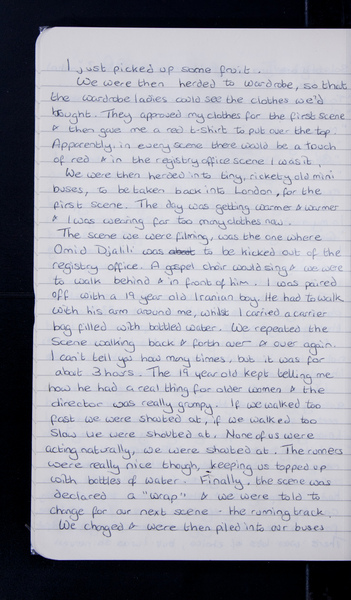 I just picked up some fruit.
We were then herded to wardrobe, so that
the wardrobe ladies could see the clothes we'd
bought. They approved my clothes for the first scene
& then gave me a red t-shirt to put over the top.
Apparently in every scene there would be a touch
of red & in the registry office scene I was it.
We were then herded into tiny, rickety old mini
buses, to be taken back into London, for the
first scene. The day was getting warmer & warmer
& I was wearing far too many clothes now.
The scene we were filming, was the one where
Omid Djalili was about to be kicked out of the
registry office. A gospel choir would sing & we were
to walk behind & in front of him. I was paired
off with a 19 year old Iranian boy. He had to walk
with his arm around me, whilst I carried a carrier
bag filled with bottled water. We repeated the
scene walking back & forth over & over again.
I can't tell you how many times, but it was for
about 3 hours. The 19 year old kept telling me
how he had a real thing for older women & the
director was really grumpy. If we walked too
fast we were shouted at, if we walked too
slow we were shouted at. None of us were
acting naturally, we were shouted at. The runners
were really nice though, keeping us topped up
with bottles of water. Finally, the scene was
declared a "wrap" & we were told to
change for our next scene - the running track.
We changed & were then piled into our buses